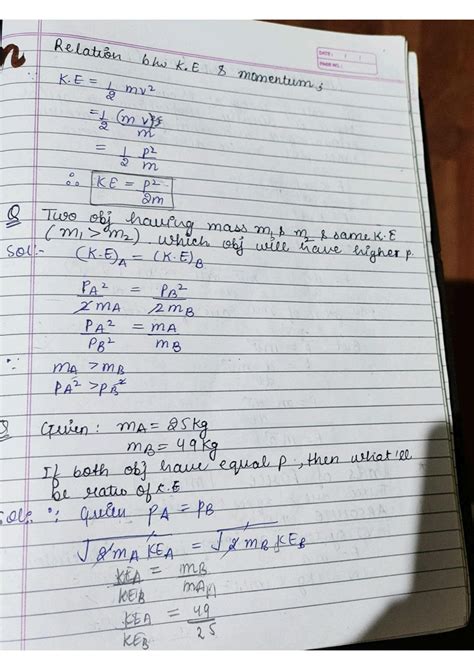 n
DATE: / /
PAGE NO.:
Relation b/w K.E & momentum
K.E = 1/2 mv²
= 1/2 (mv)²/m
= 1/2 p²/m
∴ KE = p²/2m
Q Two obj having mass m₁ & m₂ & same K.E
(m₁ > m₂). which obj will have higher p.
Sol:- (K.E)A = (K.E)B
PA²/2mA = PB²/2mB
PA²/PB² = mA/mB
∵ mA > mB
PA² > PB²
Q Given: mA = 25Kg
mB = 49Kg
If both obj have equal p, then what'll
be ratio of K.E
Sol: ∵ Given PA = PB
√2mA KEA = √2mB KEB
KEA/KEB = mB/mA
KEA/KEB = 49/25